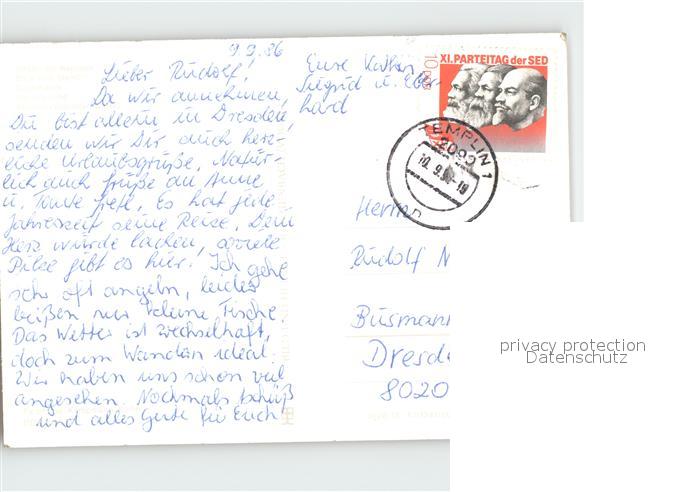 9.9.86
Lieber Rudolf!
Da wir annehmen,
Du bist allein in Dresden,
senden wir Dir auch herz-
liche Urlaubsgrüße. Natür-
lich auch Grüße an Anne
u. Tante Grete. Es hat jede
Jahreszeit seine Reize. Dein
Herz würde lachen, soviele
Pilze gibt es hier. Ich gehe
sehr oft angeln, leider
beißen nur kleine Fische.
Das Wetter ist wechselhaft,
doch zum Wandern ideal.
Wir haben uns schon viel
angesehen. Nochmals tschüß
und alles Gute für Euch
Eure Käthe,
Siegrid u. Eber-
hard
XI. PARTEITAG der SED
10
TEMPLIN 1
2090
10.9.86-19
Herrn
Rudolf N
Büsmann
Dresde
8020
privacy protection
Datenschutz